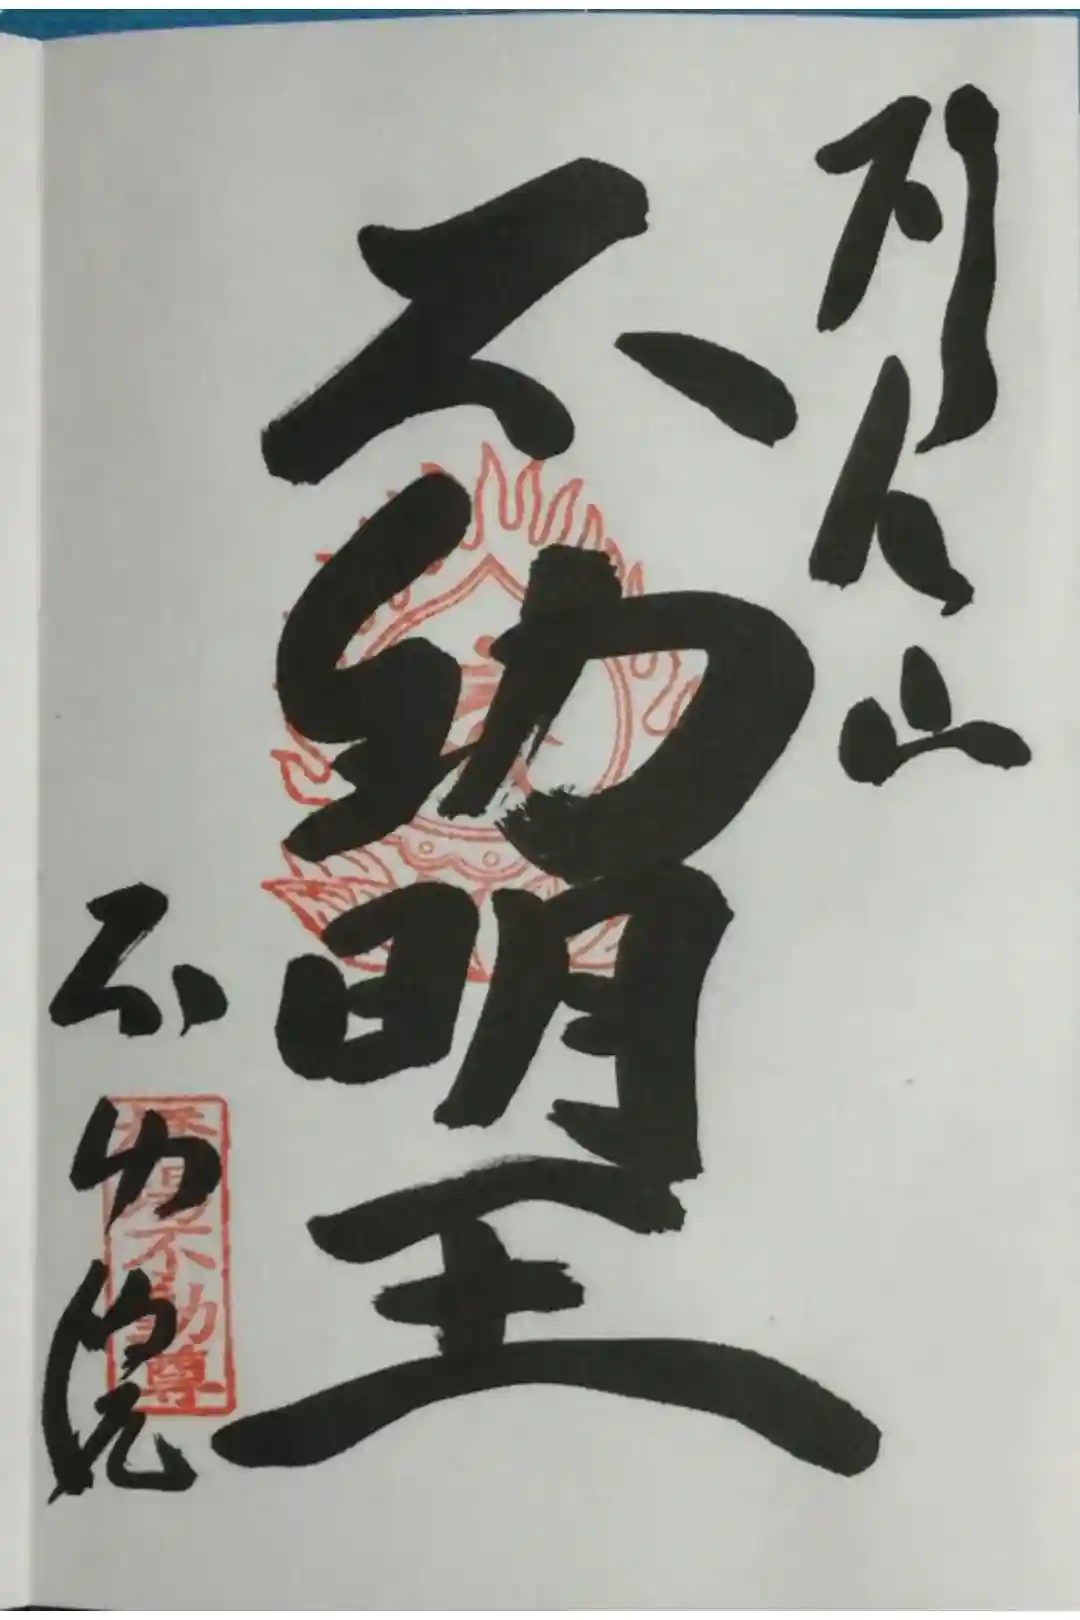 山
不動明王
不動院
不動尊